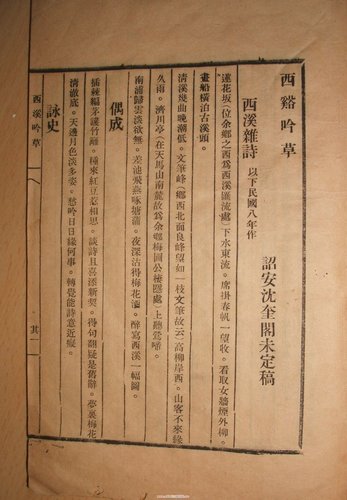 西谿吟草
詔安沈奎閣未定稿
西溪雜詩 以下民國八年作
蓮花坂(位余鄉之西爲西溪匯流處)下水東流。席掛春帆一望收。看取女牆煙外柳。
畫船橫泊古溪頭。
清溪幾曲晚潮低。文筆峰(鄉西北面良峰望如一枝文筆故云)高柳岸西。山客不來綠
久雨。濟川亭(在天馬山南麓故爲余鄉梅圃公棲隱處)上聽鶯啼。
南浦歸雲淡欲無。差池飛燕啄菰蒲。夜深沽得梅花酒。醉寫西溪一幅圖。
偶成
插棘編茅護竹籬。種來紅豆惹相思。談詩且喜添新契。得句翻疑是舊辭。夢裏梅花
清澈底。天邊月色淡多姿。愁吟日日緣何事。轉覺能詩意近癡。
詠史
西溪吟草
其一